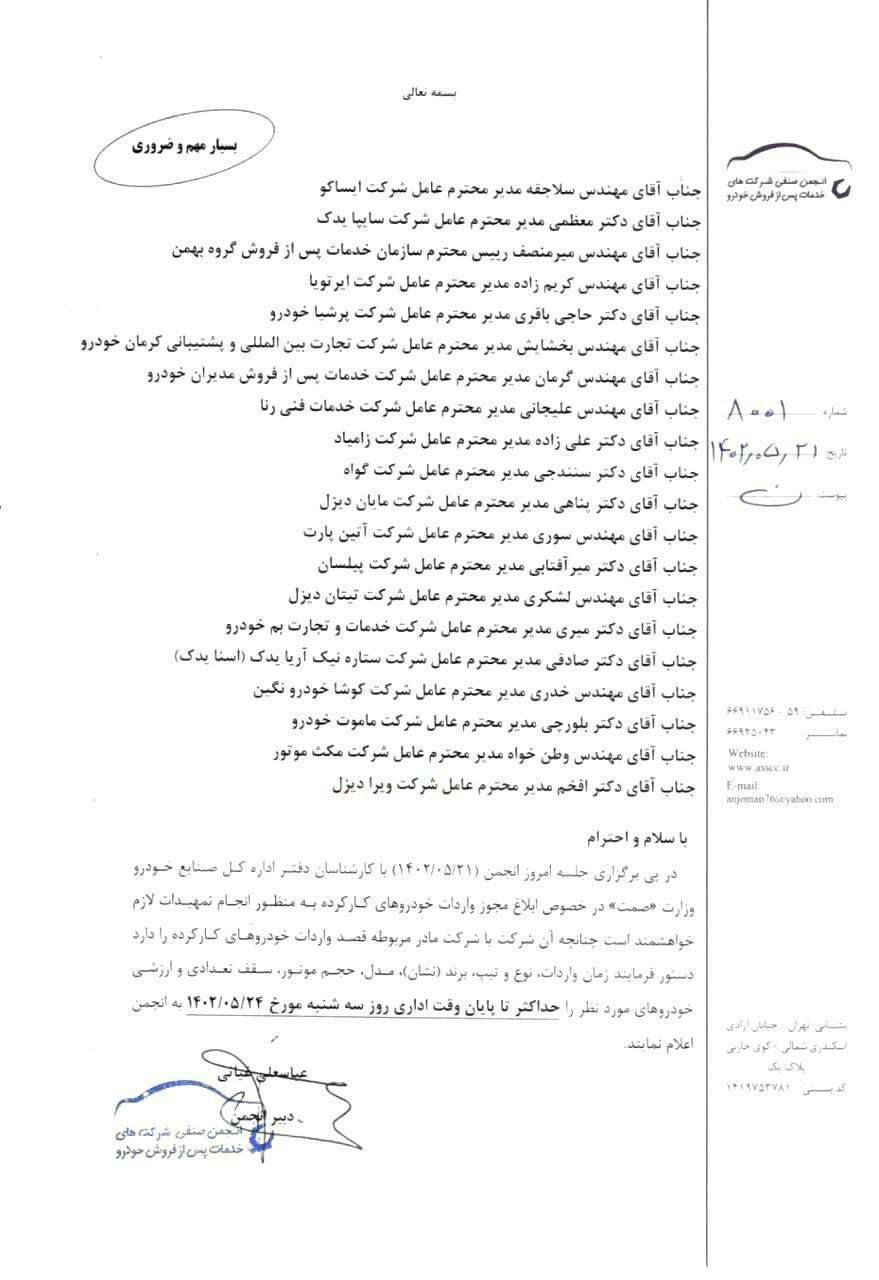 بسمه تعالی
بسیار مهم و ضروری
انجمن صنفی شرکت های
خدمات پس از فروش خودرو
جناب آقای مهندس سلاجقه مدیر محترم عامل شرکت ایساکو
جناب آقای دکتر معظمی مدیر محترم عامل شرکت سایپا یدک
جناب آقای مهندس میرمنصف رییس محترم سازمان خدمات پس از فروش گروه بهمن
جناب آقای مهندس کریم زاده مدیر محترم عامل شرکت ایرتویا
جناب آقای دکتر حاجی باقری مدیر محترم عامل شرکت پرشیا خودرو
جناب آقای مهندس بخشایش مدیر محترم عامل شرکت تجارت بین المللی و پشتیبانی کرمان خودرو
جناب آقای مهندس گرمان مدیر محترم عامل شرکت خدمات پس از فروش مدیران خودرو
جناب آقای مهندس علیجانی مدیر محترم عامل شرکت خدمات فنی رنا
جناب آقای دکتر علی زاده مدیر محترم عامل شرکت زامیاد
جناب آقای دکتر سنندجی مدیر محترم عامل شرکت گواه
جناب آقای دکتر پناهی مدیر محترم عامل شرکت مایان دیزل
جناب آقای مهندس سوری مدیر محترم عامل شرکت آتین پارت
جناب آقای دکتر میرآفتابی مدیر محترم عامل شرکت پیلسان
جناب آقای مهندس لشکری مدیر محترم عامل شرکت تیتان دیزل
جناب آقای دکتر میری مدیر محترم عامل شرکت خدمات و تجارت بم خودرو
جناب آقای دکتر صادقی مدیر محترم عامل شرکت ستاره نیک آریا یدک (اسنا یدک)
جناب آقای مهندس خدری مدیر محترم عامل شرکت کوشا خودرو نگین
جناب آقای دکتر بلورچی مدیر محترم عامل شرکت ماموت خودرو
جناب آقای مهندس وطن خواه مدیر محترم عامل شرکت مکث موتور
جناب آقای دکتر افخم مدیر محترم عامل شرکت ویرا دیزل
با سلام و احترام
در پی برگزاری جلسه امروز انجمن (۱۴۰۲/۰۵/۲۱) با کارشناسان دفتر اداره کل صنایع خودرو
وزارت «صمت» در خصوص ابلاغ مجوز واردات خودروهای کارکرده به منظور انجام تمهیدات لازم
خواهشمند است چنانچه آن شرکت یا شرکت مادر مربوطه قصد واردات خودروهای کارکرده را دارد
دستور فرمایند زمان واردات، نوع و تیپ، برند (نشان)، مدل، حجم موتور، سقف تعدادی و ارزشی
خودروهای مورد نظر را حداکثر تا پایان وقت اداری روز سه شنبه مورخ ۱۴۰۲/۰۵/۲۴ به انجمن
اعلام نمایند.
عباسعلی غیاثی
دبیر انجمن
انجمن صنفی شرکت های
خدمات پس از فروش خودرو
شماره ۸۰۰۱
تاریخ ۱۴۰۲,۰۵,۲۱
پیوست
تلفن: ۵۹ - ۶۶۹۱۱۷۵۶
نمابر ۶۶۹۲۵۰۴۳
Website:
www.asscc.ir
E-mail:
anjoman76@yahoo.com
نشانی: تهران - خیابان آزادی
اسکندری شمالی - کوی حاربی
پلاک یک
کد پستی: ۱۴۱۹۷۵۳۷۸۱